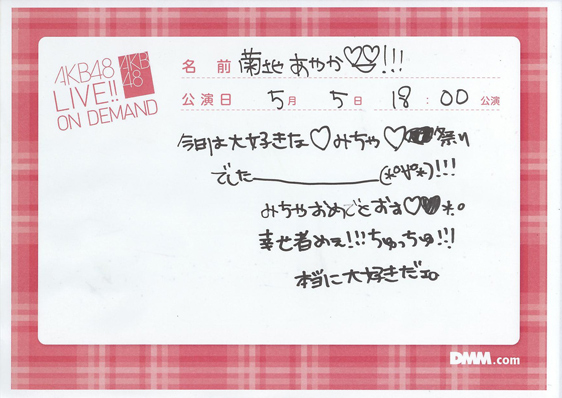 AKB48
LIVE!!
ON DEMAND
AKB
48
名 前 菊地あやか♡♡!!!
公演日 5月 5日 18:00 公演
今日は大好きな♡みちゃ♡祭り
でした――――(*°∀°*)!!!
みちゃおめでとおす♡♥*。
幸せ者めぇ!!!ちゅっちゅ!!!
本当に大好きだよ
DMM.com